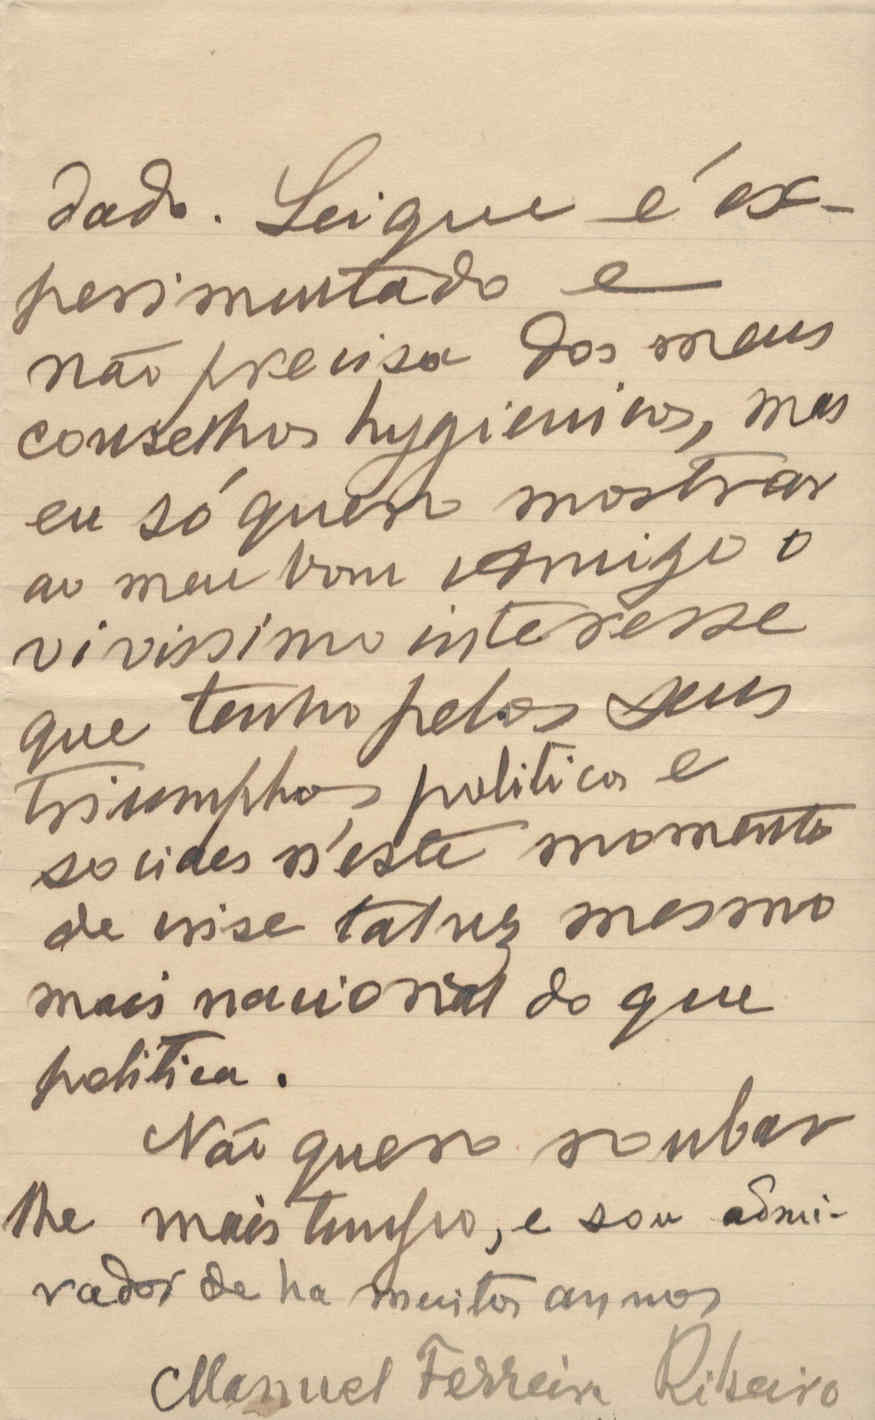 dado. Sei que é ex-
perimentado e
não precisa dos meus
conselhos hygienicos, mas
eu só quero mostrar
ao meu bom amigo o
vivissimo interesse
que tenho pelos seus
triumphos politicos e
sociaes n'este momento
de crise talvez mesmo
mais nacional do que
politica.
Não quero roubar
lhe mais tempo, e sou admi-
rador de ha muitos annos
Manuel Ferreira Ribeiro